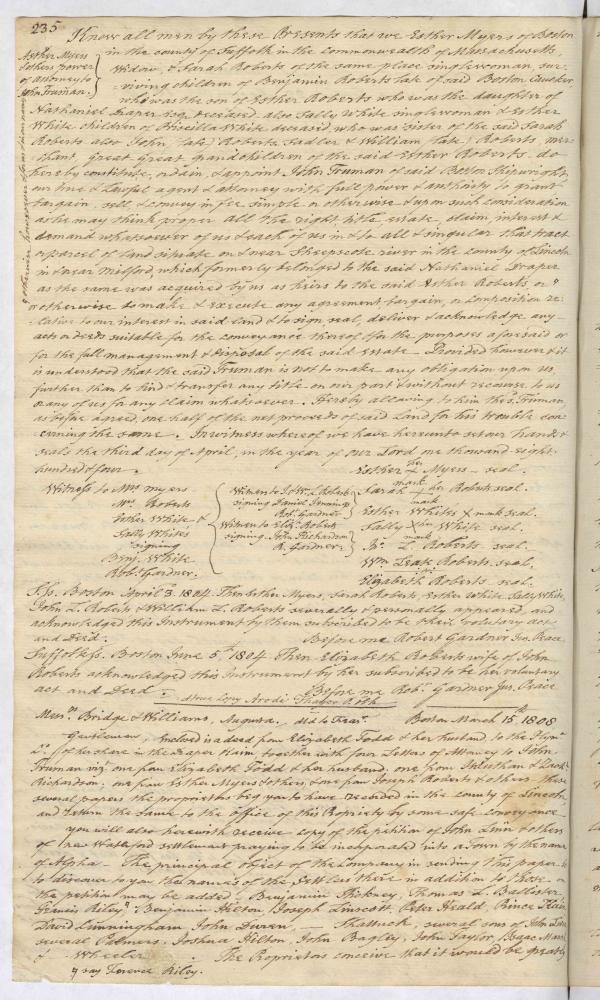 235
Know all men by these Presents that we Esther Myers of Boston
in the county of Suffolk in the commonwealth of Massachusetts,
Widow, & Sarah Roberts of the same place singlewoman, sur-
viving children of Benjamin Roberts late of said Boston
who was the son of Esther Roberts who was the daughter of
Esther Myers
& others power
of attorney to
John Truman.
Nathaniel Draper Esq. deceased, also Sally White singlewoman & Esther
White children of Priscilla White deceased, who was sister of the said Sarah
Roberts also John, Roberts, Sadler & William Roberts, mer-
chant, great great grandchildren of the said Esther Roberts, do
hereby constitute, ordain, & appoint John Truman of said Boston Shipwright,
our true & Lawful agent & attorney with full power & authority to grant
bargain, sell, & convey in fee simple or otherwise & upon such consideration
as he may think proper all the right, title, estate, claim, interest &
demand whatsoever of us & each of us in & to all & singular that tract
or parcel of land situate on & near Sheepscote river in the county of Lincoln
in & near which formerly belonged to the said Nathaniel Draper
as the same was acquired by us as heirs to the said Esther Roberts, or
or otherwise to make & execute any agreement bargain, or composition re-
lative to our interest in said land & to sign, seal, deliver & acknowledge any
acts or deeds suitable for the conveyance thereof & for the purposes aforesaid or
for the full management & disposal of the said Estate - Provided however & it
is understood that the said Truman is not to make any obligation upon us,
further than to bind & transfer any title on our part & without recourse to us
or any of us for any claim whatsoever. Hereby allowing to him the s. Truman,
as before agreed, one half of the net proceeds of said Land for his trouble con-
cerning the same. In witness whereof we have hereunto set our hands &
seals the third day of April, in the year of our Lord one thousand eight
hundred & four.
Esther her mark Myers - seal.
Sarah + her mark Roberts seal.
Esther Whites X mark seal.
Sally X her mark White seal.
Jno. L. Roberts seal.
Wm Leate Roberts. seal.
Elizabeth Roberts seal.
Witness to Mrs Myers
Mrs. Roberts
Esther White &
Sally Whites
signing
Benj. White
Robt. Gardner.
Witness to J. & Wm L. Roberts
signing Daniel Jennings
Robt. Gardner
Witness to Eliz. Roberts
signing. John Richardson
R. Gardner.
S. ss. Boston April 3. 1804. Then Esther Myers, Sarah Roberts, Esther White Sally White
John L. Roberts & William L. Roberts severally & personally appeared, and
acknowledged this Instrument by them subscribed to be their voluntary act
and Deed.
Before me Robert Gardner Jus. Peace
Suffolk ss. Boston June 5th. 1804. Then Elizabeth Roberts wife of John
Roberts acknowledged this Instrument by her subscribed to be her voluntary
act and Deed.
Before me Robt. Gardner Jus. Peace
Messrs. Bridge & Williams, Augusta.
Boston March 15th 1808
Gentlemen, Inclosed is a deed from Elizabeth Todd & her husband to the Plym.
Co. of her share in the Draper Claim together with four Letters of Attorney to John
Truman viz. one from Elizabeth Todd & her husband. one from
Richardson, one from Esther Myers & others, & one from Joseph Roberts & others these
several papers the proprietors beg you to have recorded in the county of Lincoln
and return the same to the office of this Propriety by some safe conveyance -
you will also herewith receive copy of the petition of John Linn & others
of new Waterford settlement praying to be incorporated into a Town by the name
of Alpha - The principal object of the company in sending this paper is
to discover to you the names of the settlers there in addition to those on
the petition may be added, Benjamin Hickney, Thomas L. Ballister,
Francis Riley, Benjamin Hilton, Joseph Linscott, Peter Heald, Prince
David Cunningham John Duren, — Shattuck, several sons of John
several Palmers. Joshua Hilton, John Bagley, John Taylor, Isaac
& — Wheeler. The Proprietors conceive that it would be greatly
q say Terence Riley.